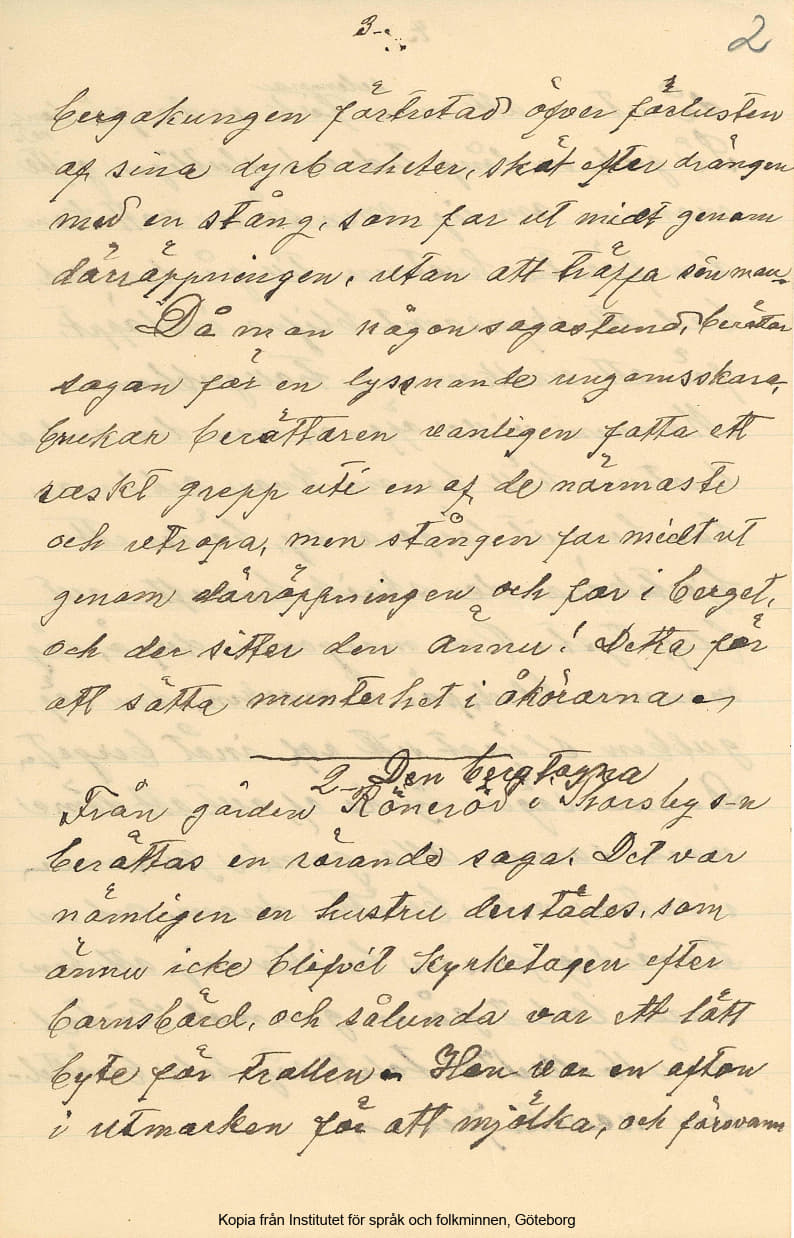 3-
2
bergakungen förtretad öfver förlusten
af sina dyrbarheter, sköt efter drängen
med en stång, som for ut midt genom
dörröppningen, utan att träffa
Då man någon sagostund, berättar
sagan för en lyssnande ungdomsskara,
brukar berättaren vanligen fatta ett
raskt grepp uti en af de närmaste
och utropa, men stången far midt ut
genom dörröppningen och far i berget,
och der sitter den ännu! Detta för
att sätta munterhet i åhörarna.
2- Den bergtagna
Från gården Röneröd i Forsby s-n
berättas en rörande saga. Det var
nämligen en hustru derstädes, som
ännu icke blifvit kyrkotagen efter
barnsbörd, och sålunda var ett lätt
byte för trollen. Hon var en afton
i utmarken för att mjölka, och försvann
Kopia från Institutet för språk och folkminnen, Göteborg